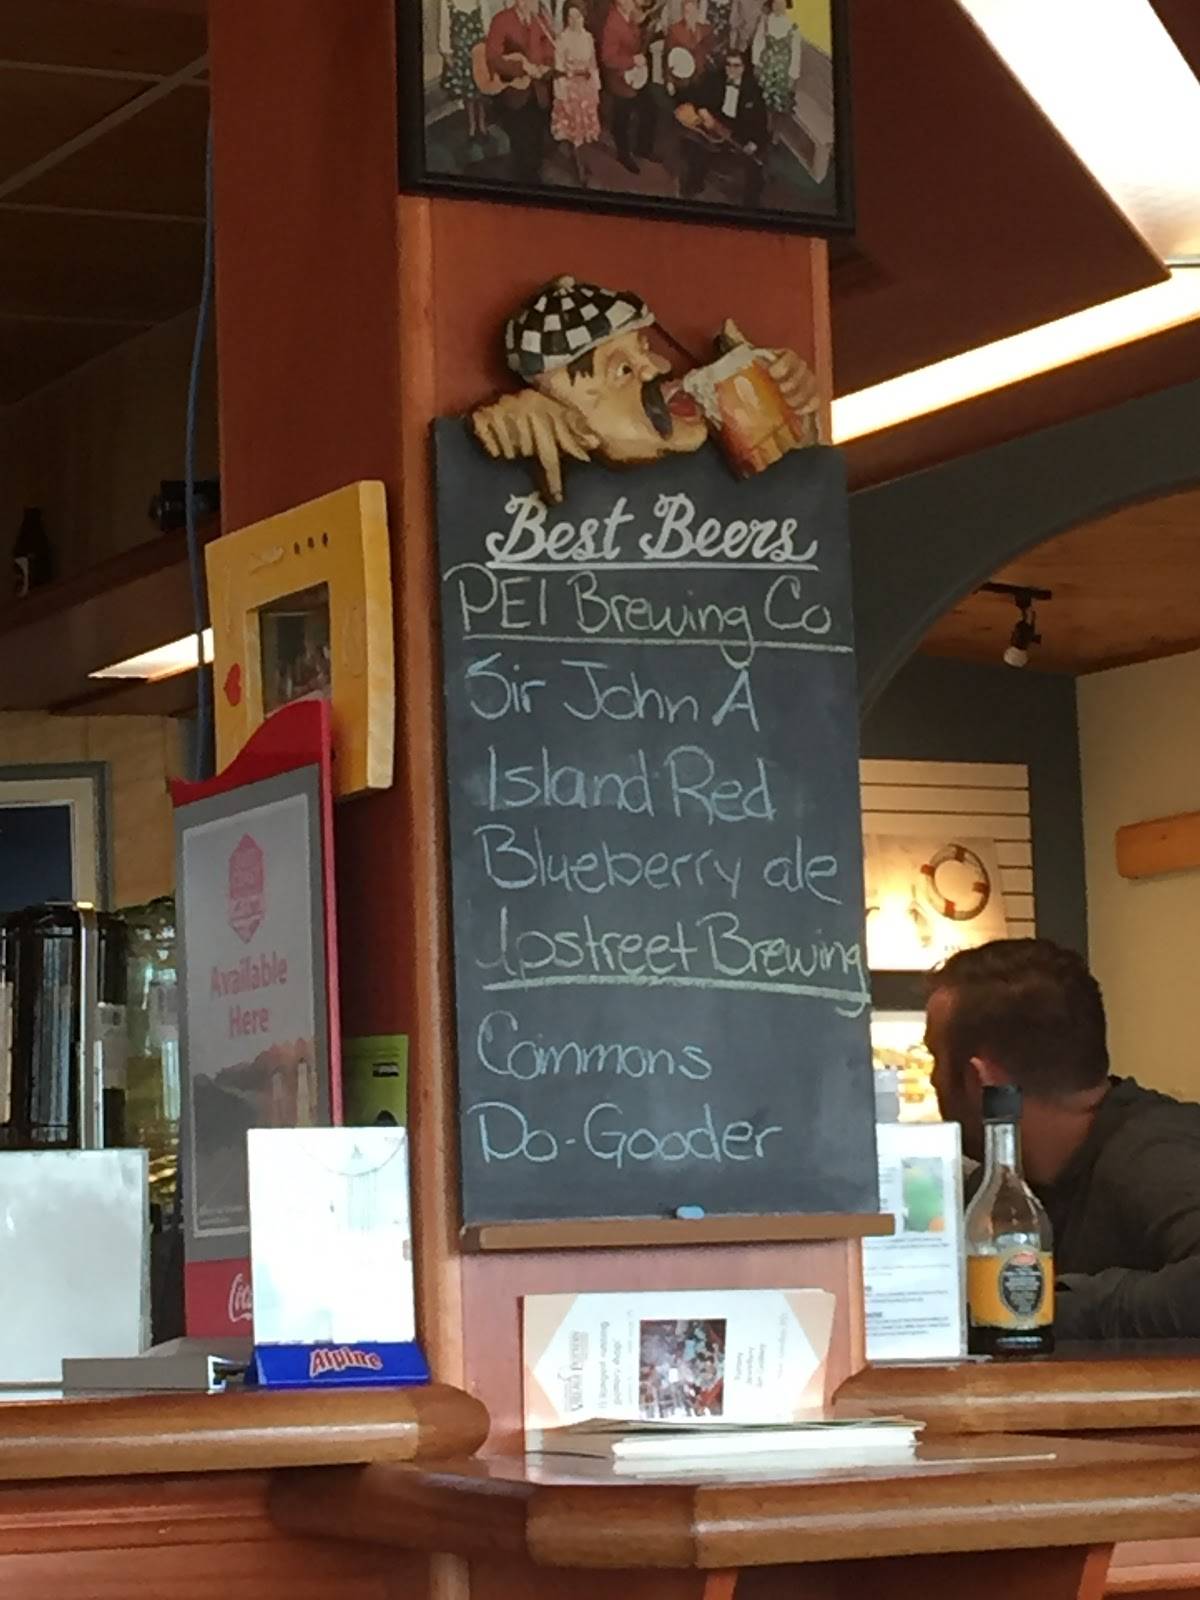 Best Beers
PEI Brewing Co
Sir John A
Island Red
Blueberry ale
Upstreet Brewing
Commons
Do-Gooder
Available
Here
Alpine